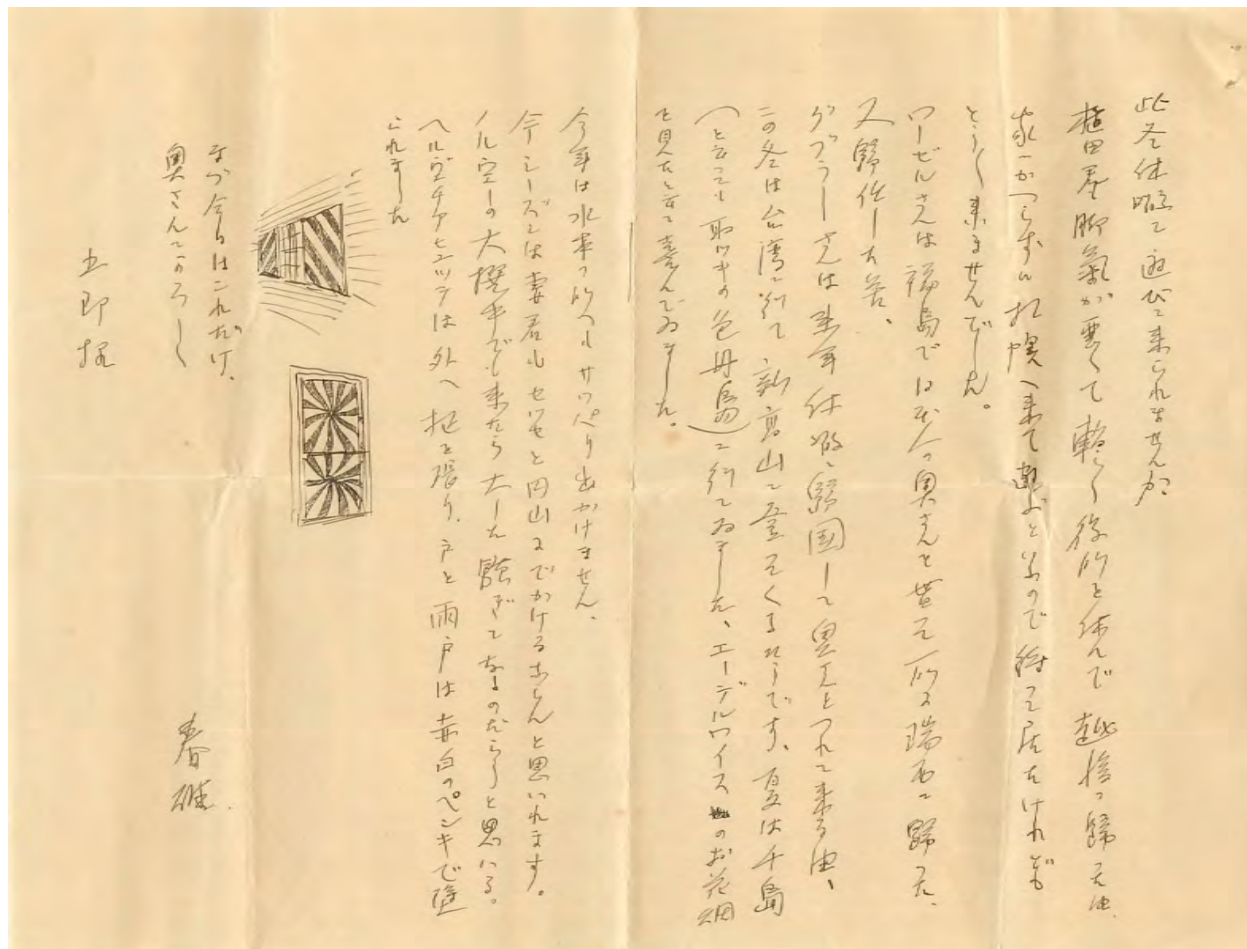 此冬休暇に遊びに来られませんか
植田君脚氣が悪くて暫く役所を休んで越後に歸った由、
家へかへらずに札幌へ来て遊ぶと云ふので待って居たけれども
とうとう来ませんでした。
ワーゼルさんは福島で日本人の奥さんを貰って一所に瑞西に歸った、
又歸任した筈、
グブラーさんは来年休暇に歸国して奥さんをつれて来る由、
この冬は台湾に行って新高山に登ってくるさうです、夏は千島
(と云っても取ツキの色丹島)に行ってゐました、エーデルワイスのお花畑
を見たと云って喜んでゐました。
今年は水車の所へはサッパリ出かけません、
今シーズンは妻君のセワと円山までかけると思はれます。
ノルウェーの大撰手でも来たら大した騒ぎになるのだらうと思はる。
ヘルヴェチヤヒュッテは外へ板を張り、戸と雨戸は赤白のペンキで塗
られました
まづ今日はこれだけ、
奥さんによろしく
春雄
様